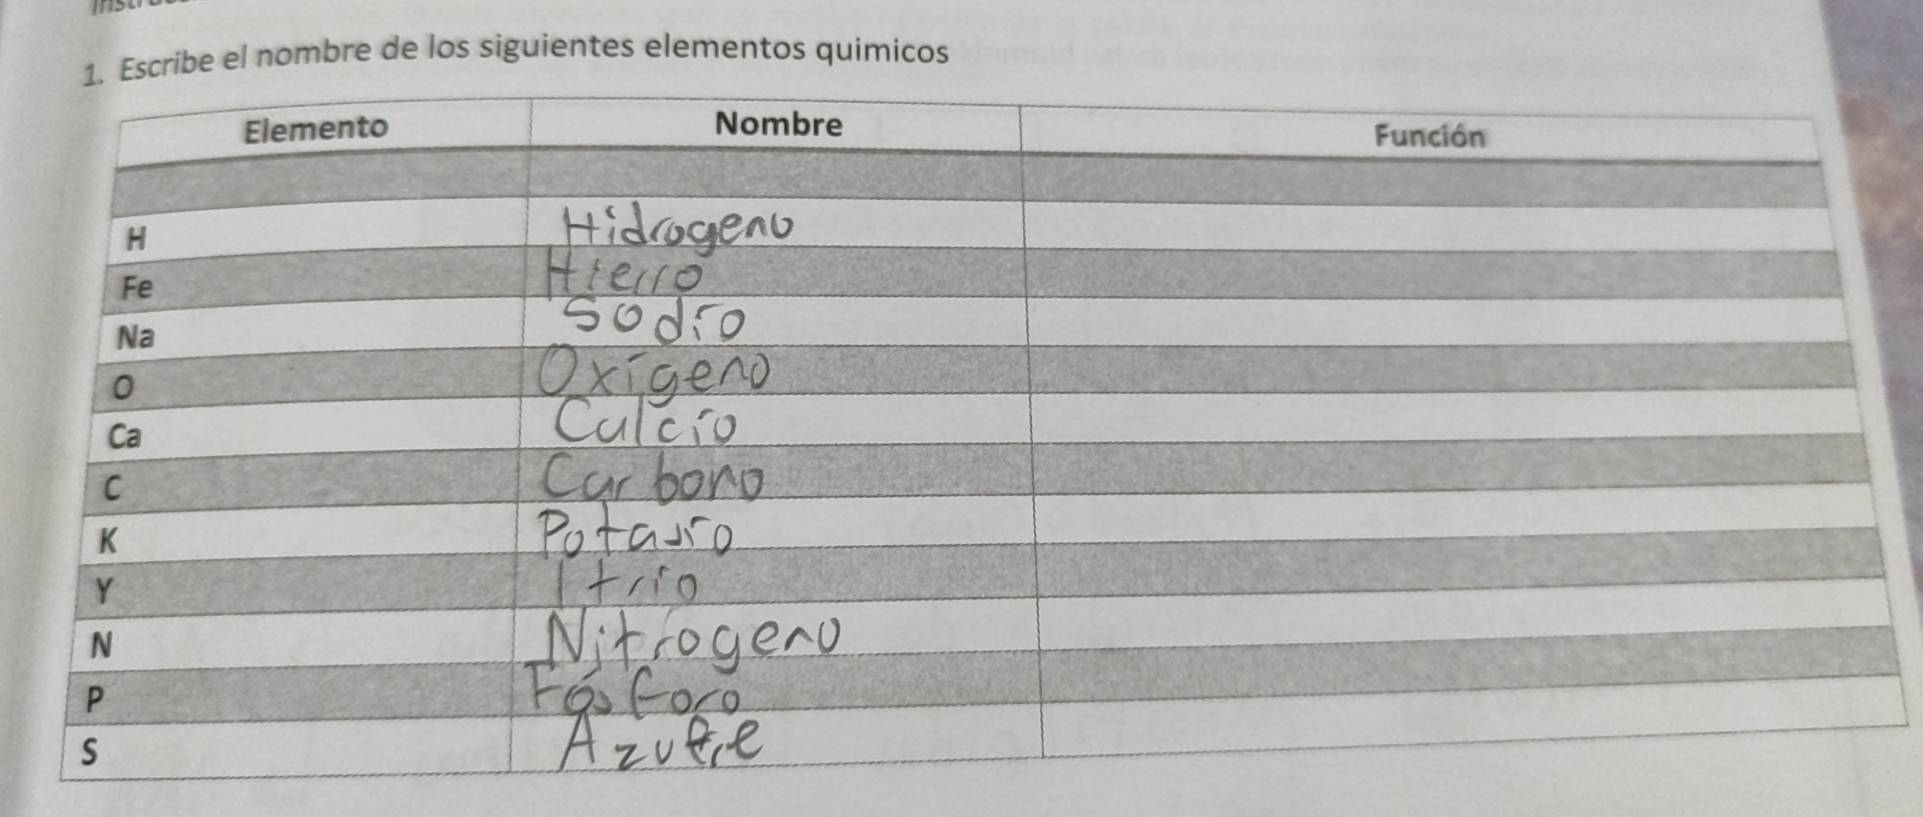 1. Escribe el nombre de los siguientes elementos quimicos
Elemento Nombre Función
H Hidrogeno
Fe Hierro
Na Sodio
O Oxigeno
Ca Calcio
C Carbono
K Potasio
Y Itrio
N Nitrogeno
P Fósforo
S Azufre